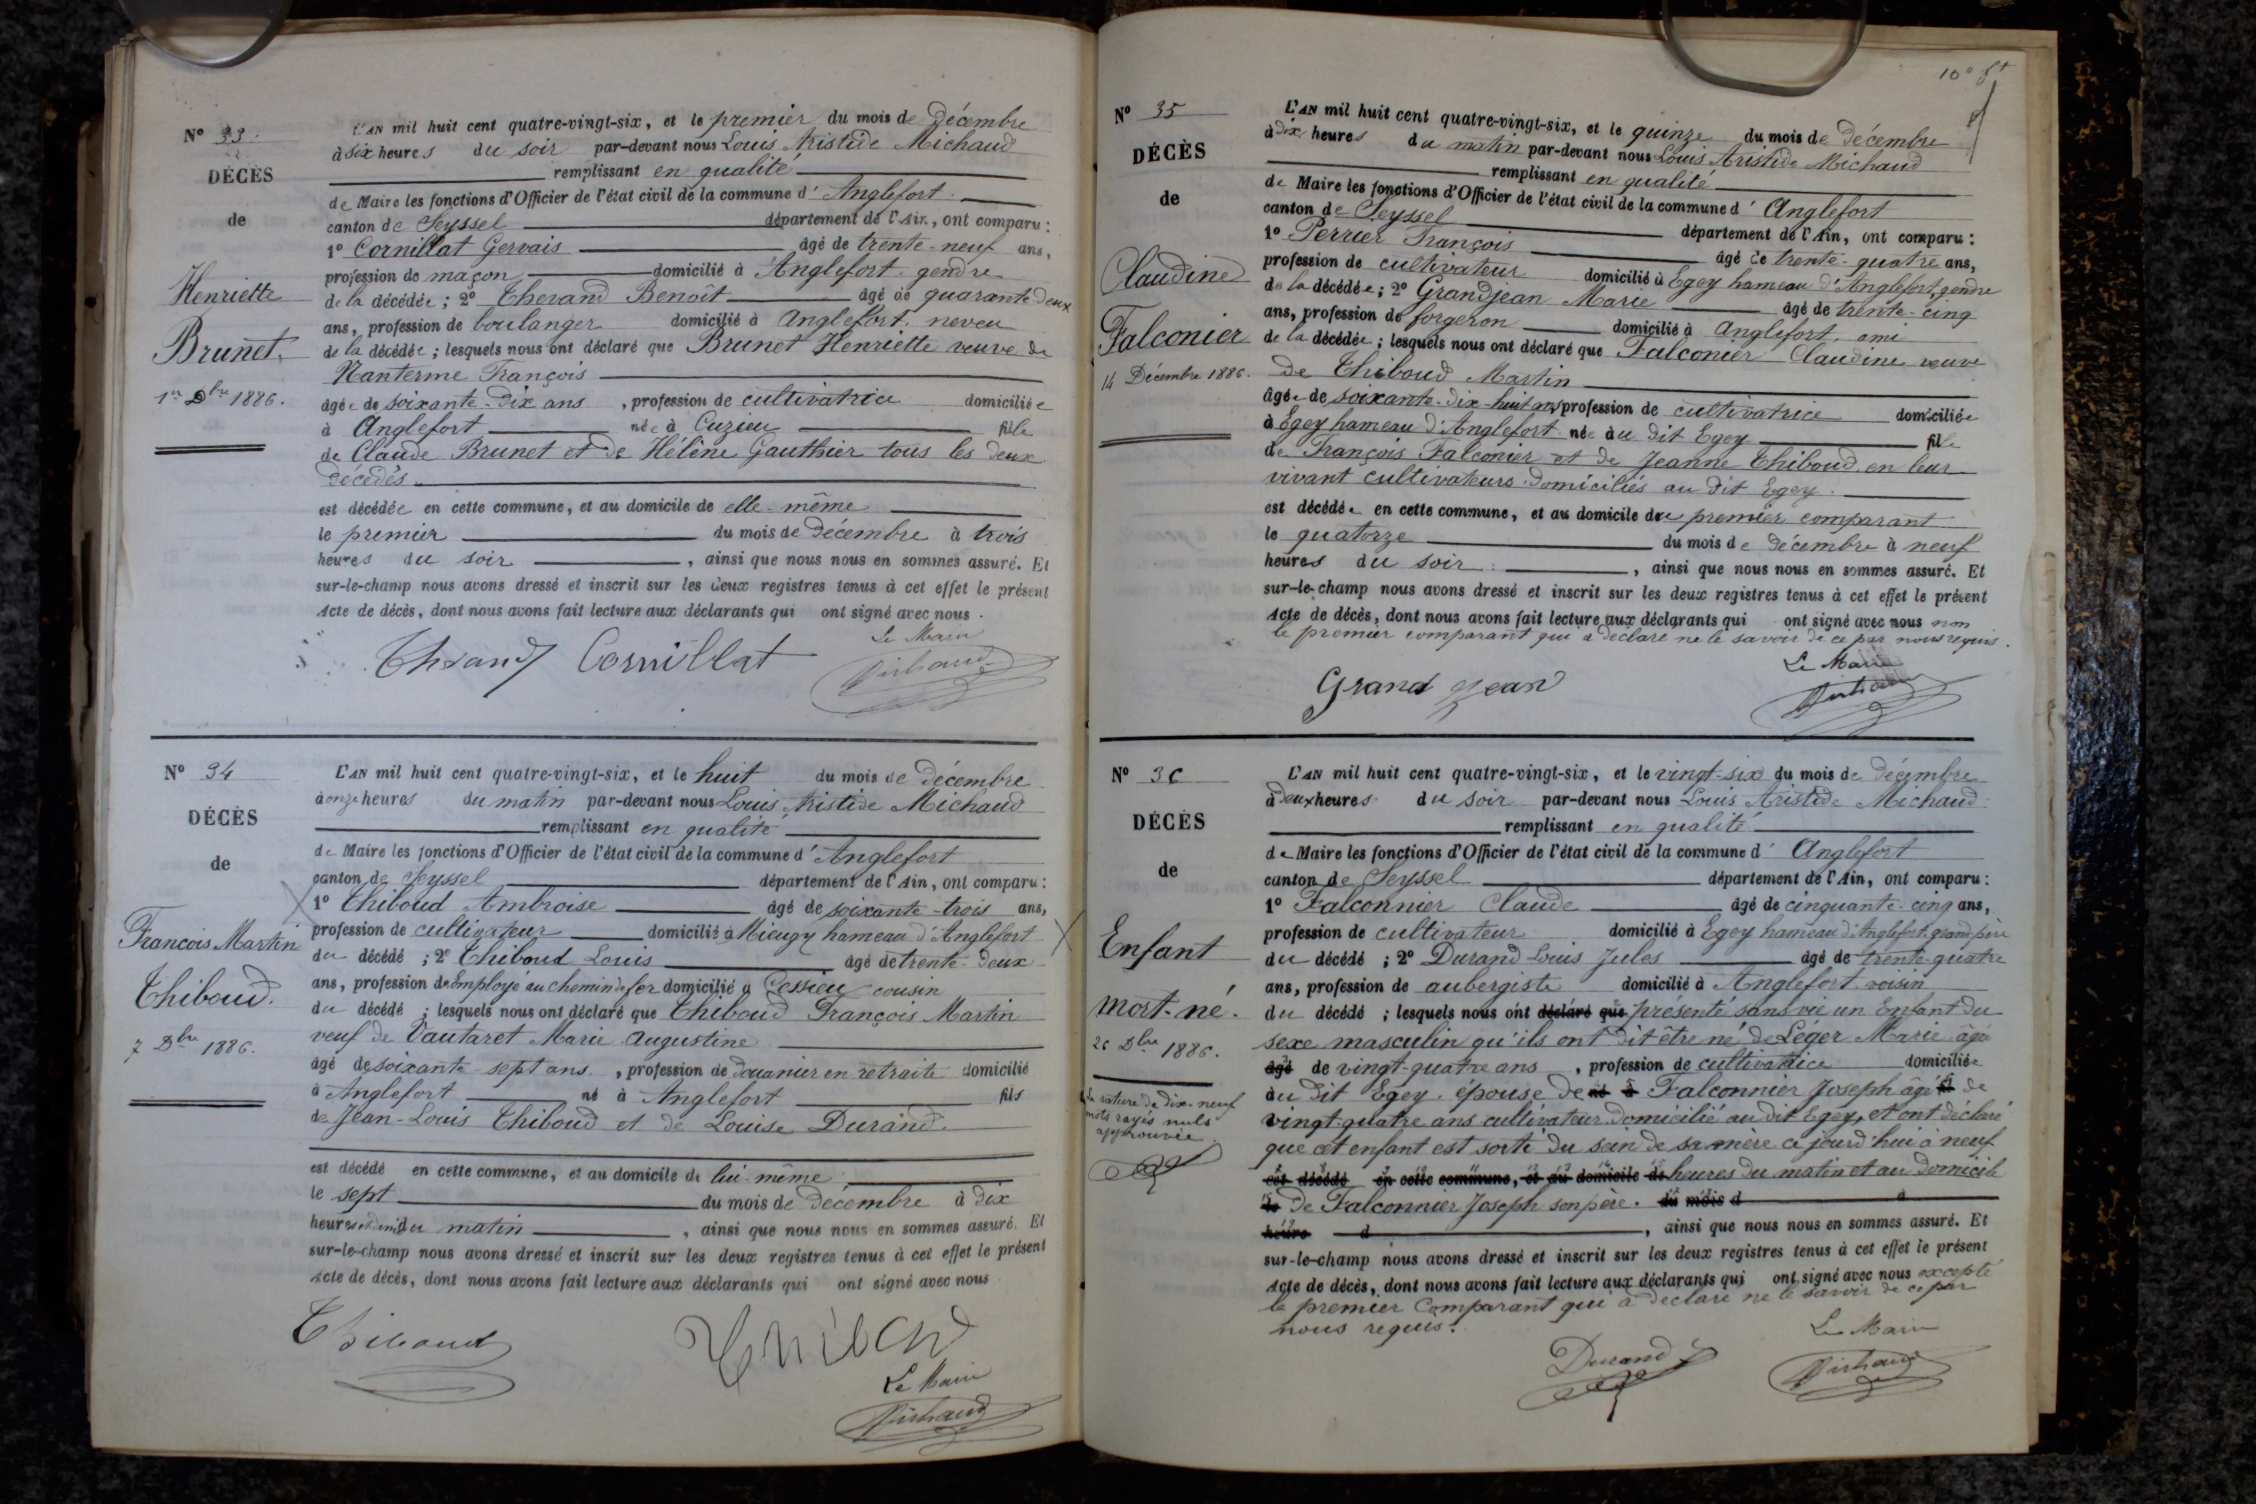 N° 33.
DÉCÈS
de
Henriette
Brunet.
1er Dbre 1886.
L'AN mil huit cent quatre-vingt-six, et le premier du mois de Décembre
à six heures du soir par-devant nous Louis Aristide Michaud
remplissant en qualité
de Maire les fonctions d'Officier de l'état civil de la commune d'Anglefort
canton de Seyssel département de l'Ain, ont comparu :
1° Cornillat Gervais âgé de trente-neuf ans,
profession de maçon domicilié à Anglefort gendre
de la décédée ; 2° Therand Benoît âgé de quarante deux
ans, profession de boulanger domicilié à Anglefort. neveu
de la décédée ; lesquels nous ont déclaré que Brunet Henriette veuve de
Nanterme François
âgée de soixante-dix ans, profession de cultivatrice domiciliée
à Anglefort née à Cuzieu fille
de Claude Brunet et de Hélène Gauthier tous les deux
décédés
est décédée en cette commune, et au domicile de elle-même
le premier du mois de Décembre à trois
heures du soir, ainsi que nous nous en sommes assuré. Et
sur-le-champ nous avons dressé et inscrit sur les deux registres tenus à cet effet le présent
Acte de décès, dont nous avons fait lecture aux déclarants qui ont signé avec nous.
Le Maire
Therand Cornillat Michaud
N° 34
DÉCÈS
de
François Martin
Thiboud.
7 Dbre 1886.
L'AN mil huit cent quatre-vingt-six, et le huit du mois de Décembre
à onze heures du matin par-devant nous Louis Aristide Michaud
remplissant en qualité
de Maire les fonctions d'Officier de l'état civil de la commune d'Anglefort
canton de Seyssel département de l'Ain, ont comparu :
1° Thiboud Ambroise âgé de soixante-trois ans,
profession de cultivateur domicilié à Mieugy hameau d'Anglefort
du décédé ; 2° Thiboud Louis âgé de trente-deux
ans, profession de Employé au chemin de fer domicilié à Cessieu cousin
du décédé ; lesquels nous ont déclaré que Thiboud François Martin
veuf de Vautaret Marie Augustine
âgé de soixante-sept ans, profession de douanier en retraite domicilié
à Anglefort né à Anglefort fils
de Jean-Louis Thiboud et de Louise Durand.
est décédé en cette commune, et au domicile de lui-même
le sept du mois de Décembre à dix
heures et demi du matin, ainsi que nous nous en sommes assuré. Et
sur-le-champ nous avons dressé et inscrit sur les deux registres tenus à cet effet le présent
Acte de décès, dont nous avons fait lecture aux déclarants qui ont signé avec nous
Thiboud
Le Maire
Michaud
N° 35
DÉCÈS
de
Claudine
Falconier
14 Décembre 1886.
L'AN mil huit cent quatre-vingt-six, et le quinze du mois de Décembre
à dix heures du matin par-devant nous Louis Aristide Michaud
remplissant en qualité
de Maire les fonctions d'Officier de l'état civil de la commune d'Anglefort
canton de Seyssel département de l'Ain, ont comparu :
1° Perrier François âgé de trente-quatre ans,
profession de cultivateur domicilié à Egey hameau d'Anglefort, gendre
de la décédée ; 2° Grandjean Marie âgé de trente-cinq
ans, profession de forgeron domicilié à Anglefort, ami
de la décédée ; lesquels nous ont déclaré que Falconier Claudine veuve
de Thiboud Martin
âgée de soixante-dix-huit ans, profession de cultivatrice domiciliée
à Egey hameau d'Anglefort née au dit Egey fille
de François Falconier et de Jeanne Thiboud en leur
vivant cultivateurs domiciliés au dit Egey.
est décédée en cette commune, et au domicile du premier comparant
le quatorze du mois de Décembre à neuf
heures du soir, ainsi que nous nous en sommes assuré. Et
sur-le-champ nous avons dressé et inscrit sur les deux registres tenus à cet effet le présent
Acte de décès, dont nous avons fait lecture aux déclarants qui ont signé avec nous non
le premier comparant qui a déclaré ne le savoir de ce par nous requis.
Le Maire
Grand Jean Michaud
N° 36
DÉCÈS
de
Enfant
Mort-né.
26 Dbre 1886.
La rature de dix-neuf
mots rayés nuls
approuvée.
L'AN mil huit cent quatre-vingt-six, et le vingt-six du mois de Décembre
à deux heures du soir par-devant nous Louis Aristide Michaud
remplissant en qualité
de Maire les fonctions d'Officier de l'état civil de la commune d'Anglefort
canton de Seyssel département de l'Ain, ont comparu :
1° Falconnier Claude âgé de cinquante-cinq ans,
profession de cultivateur domicilié à Egey hameau d'Anglefort, grand-père
du décédé ; 2° Durand Louis Jules âgé de trente-quatre
ans, profession de aubergiste domicilié à Anglefort voisin
du décédé ; lesquels nous ont déclaré que présenté sans vie un Enfant du
sexe masculin qu'ils ont dit être né de Léger Marie âgée
âgé de vingt-quatre ans, profession de cultivatrice domiciliée
au dit Egey. épouse de né à Falconnier Joseph âgé de
vingt-quatre ans cultivateur domicilié au dit Egey, et ont déclaré
que cet enfant est sorti du sein de sa mère ce jourd'hui à neuf
est décédé en cette commune, et au domicile de heures du matin et au domicile
le de Falconnier Joseph son père. du mois d à
heure d, ainsi que nous nous en sommes assuré. Et
sur-le-champ nous avons dressé et inscrit sur les deux registres tenus à cet effet le présent
Acte de décès, dont nous avons fait lecture aux déclarants qui ont signé avec nous excepté
le premier Comparant qui a déclaré ne le savoir de ce par
nous requis.
Le Maire
Durand Michaud